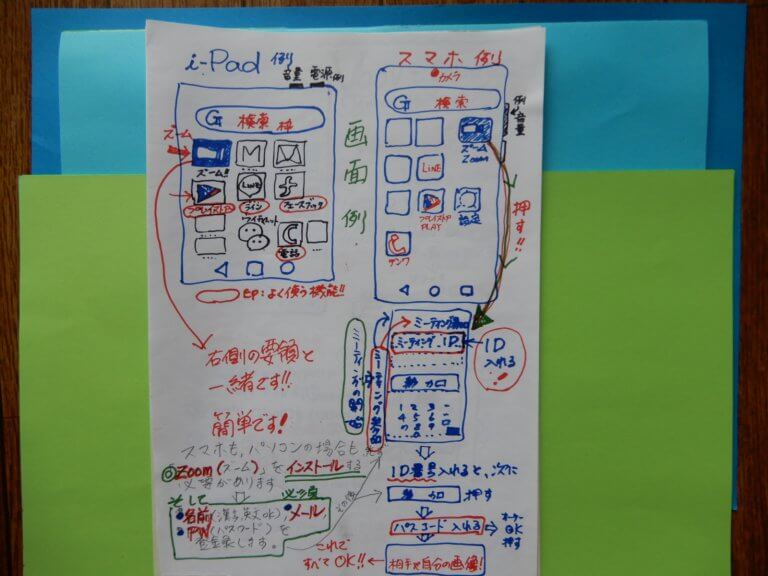 i-Pad 例
音量 電源 例
G 検索 枠
ズーム
ズーム!!
M
LINE
プレイストア
ライン
フェースブック
電話
E印：よく使う機能!!
画面例
スマホ 例
カメラ
G 検索
例 音量
ズーム
Zoom
LiNE
プレイストア
PLAY
設定
デンワ
押す!!
右側の要領と
一緒です!!
簡単です!
ミーティング ID
ID
入れる
!
参加
1 2 3
4 5 6
スマホも,パソコンの場合も
◎Zoom(ズーム)」を インストールする
必要があります
そして
必須
・名前(漢字,英文OK),・メール,
・PW(パスワード)を
登録します。
その後
これで
すべてOK!!
ID番号入れると、次に
参加 押す
パスコード 入れる
OK
押す
相手や自分の画像!